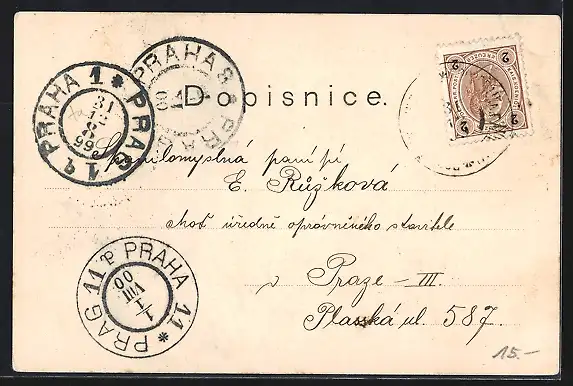 PRAHA 1 * PRAG 1
31
12
8
99
PRAHA 8 * PRAG
Dopisnice.
2 KREUZER 2
Š paní pí
E. Růžková
choť úředně oprávněného stavitele
v Praze - III.
Plasská ul. 587.
PRAG 11 P PRAHA 11 *
1
1
VIII
00
15.-